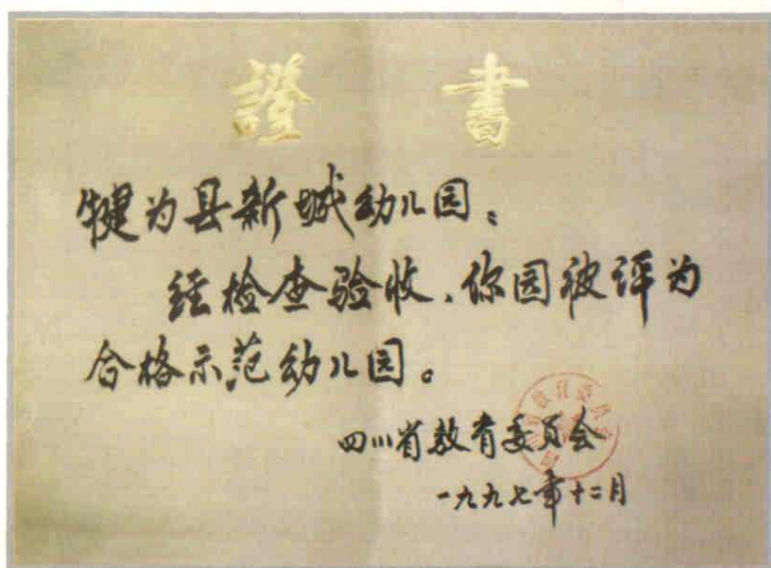 證 書
犍为县新城幼儿园：
经检查验收，你园被评为
合格示范幼儿园。
四川省教育委员会
一九九七年十二月